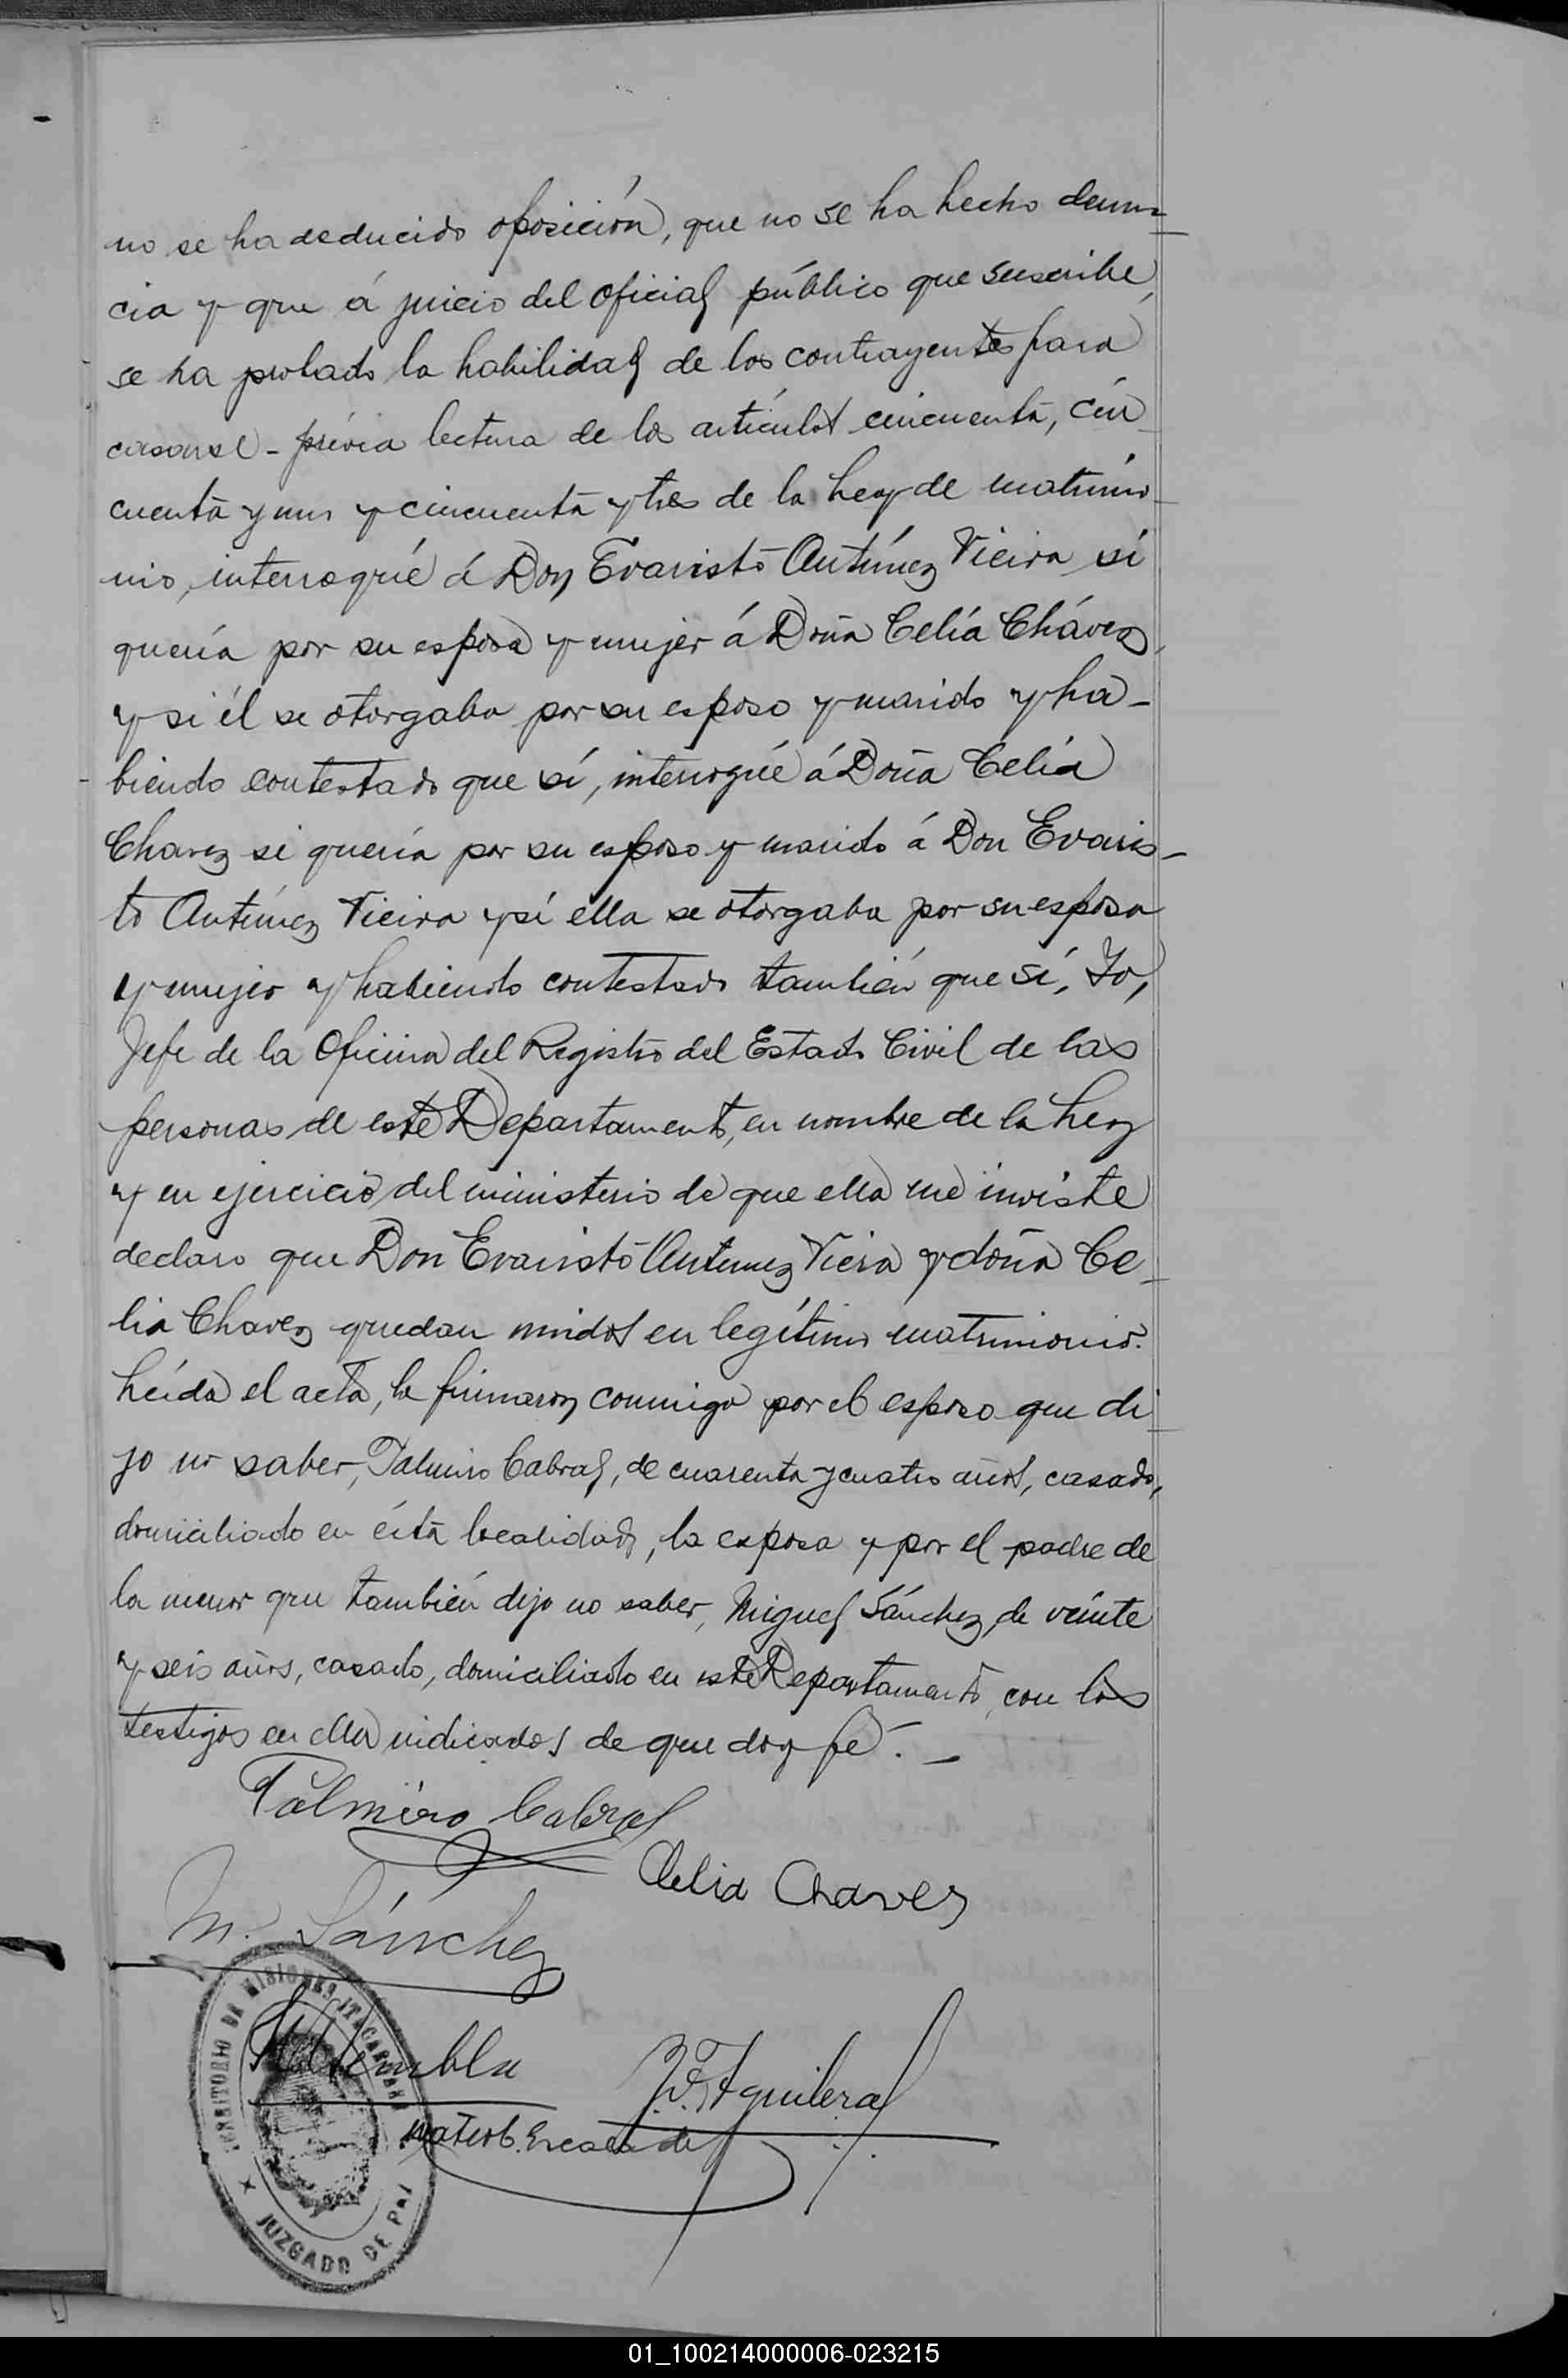 no se ha deducido oposición, que no se ha hecho denun-
cia y que á juicio del oficial público que suscribe,
se ha probado la habilidad de los contrayentes para
casarse - prévia lectura de los artículos cincuenta, cin-
cuenta y uno y cincuenta y tres de la Ley de matrimo-
nio, interrogué á Don Evaristo Antúnez Vieira si
quería por su esposa y mujer á Doña Celia Cháves,
y si él se otorgaba por su esposo y marido y ha-
biendo contestado que sí, interrogué á Doña Celia
Chavez si quería por su esposo y marido á Don Evaris-
to Antúnez Vieira y si ella se otorgaba por su esposa
y mujer y habiendo contestado también que sí, Yo,
Jefe de la Oficina del Registro del Estado Civil de las
personas de este Departamento, en nombre de la Ley
y en ejercicio del ministerio de que ella me inviste
declaro que Don Evaristo Antunez Viera y doña Ce-
lia Chavez quedan unidos en legítimo matrimonio.
Leída el acta, la firmaron conmigo por el esposo que di-
jo no saber, Palmiro Cabral, de cuarenta y cuatro años, casado,
domiciliado en ésta localidad, la esposa y por el padre de
la menor que también dijo no saber, Miguel Sánchez, de veinte
y seis años, casado, domiciliado en este Departamento, con los
testigos en ella indicados de que doy fé. -
Palmiro Cabral
Celia Chaves
M. Sánchez
Aguilera
TERRITORIO DE MISIONES ITACARUARE
JUZGADO DE PAZ
01_100214000006-023215